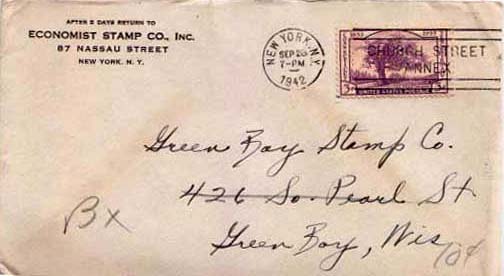 AFTER 5 DAYS RETURN TO
ECONOMIST STAMP CO., INC.
87 NASSAU STREET
NEW YORK, N. Y.
NEW YORK, N.Y.
SEP 28
7-PM
1942
CHURCH STREET
ANNEX
UNITED STATES POSTAGE
3¢ 3¢
Green Bay Stamp Co.
426 So. Pearl St
Green Bay, Wis
BX
10¢